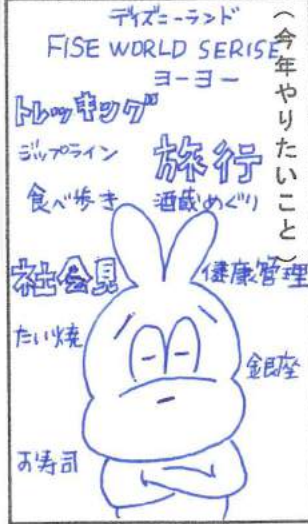 (今年やりたいこと)
ディズニーランド
FISE WORLD SERISE
ヨーヨー
トレッキング
ジップライン
旅行
食べ歩き
酒蔵めぐり
社会見
健康管理
たい焼
銀座
お寿司